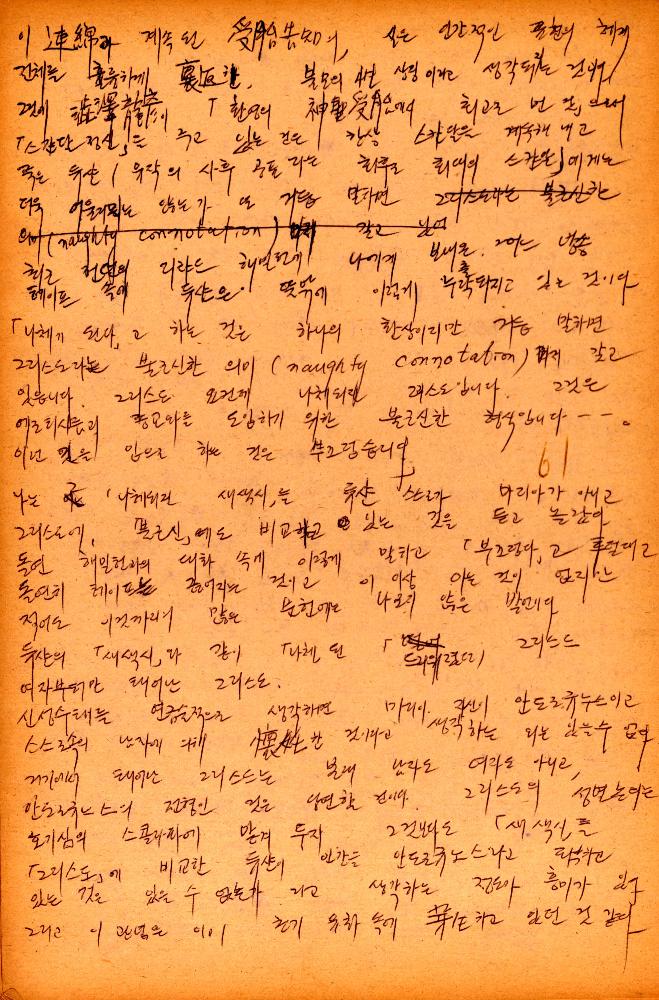 이 連綿과 계속된 受胎告知의, 모든 인간적인 표현의 체계
전체를 훌륭하게 裏返한, 불모의 4번 상징이라고 생각되는 것이며,
그것이 「환영의 神聖受胎에서 최고로 번
「스캔달 정신」을 주고 있는 것은 항상 스캔달을 계속해 내고
죽은 듀샹 (유작의 사후 공표라는 최후로 최대의 스캔달)에게는
더욱 어울리지는 않는가 또 거듭 말하면 그리스도라는 불근신한
의미 (naughty connotation) 마저 갖고 있어
최근 런던의 리챠드 해밀턴이 나에게 보내온, 어느 방송
테이프 속에 듀샹은 뜻밖에 이렇게 누락되지고 있는 것이다
「나체가 된다」고 하는 것은 하나의 환상이지만 거듭 말하면
그리스도라는 불근신한 의미 (naughty connotation) 마저 갖고
있습니다. 그리스도 요컨대 나체되면 그리스도입니다. 그것은
에로티시즘과 종교와를 도입하기 위한 불근신한 형식입니다 --.
이런 것을 입으로 하는 것은 부끄럽습니다
61
나는 「나체되면 새색시」를 듀샹 스스로가 마리아가 아니고
그리스도에, 불근신」에도 비교하고 있는 것을 듣고 놀랐다
돌연 해밀턴과의 대화 속에 이렇게 말하고 「부끄럽다」고
돌연히 테이프는 끊어지는 것이고 이 이상 아는 것이 없지만
적어도 이것까지의 많은 문헌에는 나오지 않은 발언이다
듀샹의 「새색시」와 같이 「나체」된 「 드리워졌다」 그리스도
여자부터만 태어난 그리스도.
신성수태를 연금술적으로 생각하면 마리아 자신이 안드로규누스이고
스스로속의 남자에 의해 懷妊한 것이라고 생각하는 외는 있을수 없다
거기에서 태어난 그리스도는 본래 남자도 여자도 아니고,
안드로규노스의 전형인 것은 당연할 것이다. 그리스도의 성변논의는
호기심의 스콜라파에 맡겨 두자 그것보다도 「새색신」를
「그리스도」에 비교한 듀샹의 인간을 안드로규노스라고 파악하고
있는 것은 있을 수 없는가 라고 생각하는 정도가 흥미가 있다
그리고 이 관념은 이미 초기 유화 속에 萌芽하고 있던 것 같다